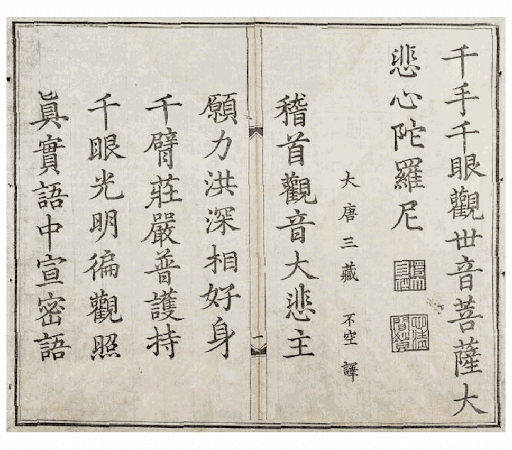 千手千眼觀世音菩薩大
悲心陀羅尼
大唐三藏 不空 譯
稽首觀音大悲主
願力洪深相好身
千臂莊嚴普護持
千眼光明徧觀照
眞實語中宣密語